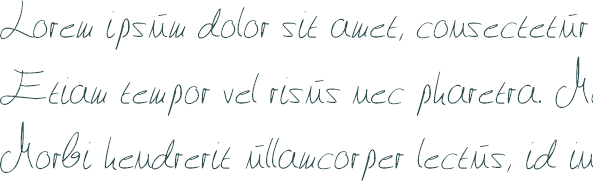 Lorem ipsum dolor sit amet, consectetur
Etiam tempor vel risus nec pharetra.
Morbi hendrerit ullamcorper lectus, id in